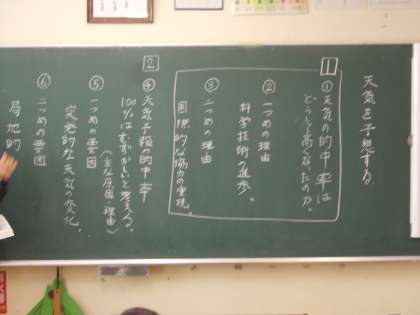 天気を予想する
1
①天気の的中率は
どうして高くなったのか。
②一つめの理由
科学技術の進歩。
③二つめの理由
国際的な協力の実現。
2
④天気予報の的中率
100%はむずかしいと考える。
⑤一つめの要因
(主な原因・理由)
突発的な天気の変化。
⑥二つめの要因
局地的